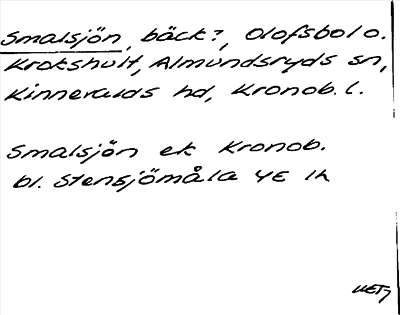 Smalsjön, bäck?, Olofsbol o.
Krokshult, Almundsryds sn,
Kinnevalds hd, Kronob. l.
Smalsjön ek Kronob.
bl. Stensjömåla 4E 1h